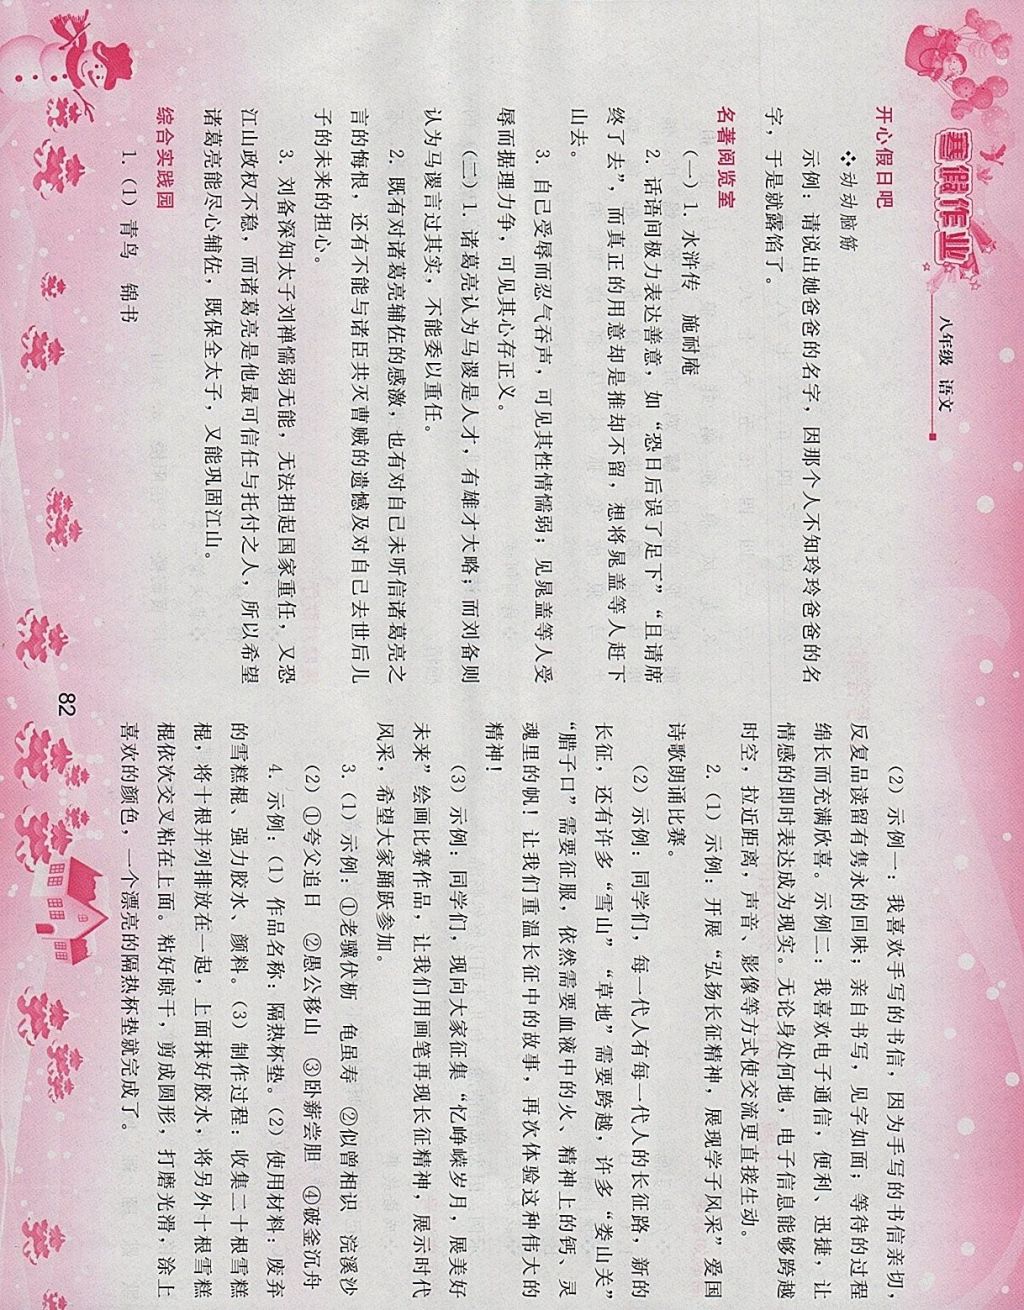 寒假作业
八年级 语文
开心假日吧
❖动动脑筋
示例：请说出她爸爸的名字，因那个人不知玲玲爸爸的名
字，于是就露馅了。
名著阅览室
(一) 1. 水浒传 施耐庵
2. 话语间极力表达善意，如“恐日后误了足下”“且请席
终了去”，而真正的用意却是推却不留，想将晁盖等人赶下
山去。
3. 自己受辱而忍气吞声，可见其性情懦弱；见晁盖等人受
辱而据理力争，可见其心存正义。
(二) 1. 诸葛亮认为马谡是人才，有雄才大略；而刘备则
认为马谡言过其实，不能委以重任。
2. 既有对诸葛亮辅佐的感激，也有对自己未听信诸葛亮之
言的悔恨，还有不能与诸臣共灭曹贼的遗憾及对自己去世后儿
子的未来的担心。
3. 刘备深知太子刘禅懦弱无能，无法担起国家重任，又恐
江山政权不稳，而诸葛亮是他最可信任与托付之人，所以希望
诸葛亮能尽心辅佐，既保全太子，又能巩固江山。
综合实践园
1. (1) 青鸟 锦书
(2) 示例一：我喜欢手写的书信，因为手写的书信亲切，
反复品读留有隽永的回味；亲自书写，见字如面；等待的过程
绵长而充满欣喜。示例二：我喜欢电子通信，便利、迅捷，让
情感的即时表达成为现实。无论身处何地，电子信息能够跨越
时空，拉近距离，声音、影像等方式使交流更直接生动。
2. (1) 示例：开展“弘扬长征精神，展现学子风采”爱国
诗歌朗诵比赛。
(2) 示例：同学们，每一代人有每一代人的长征路，新的
长征，还有许多“雪山”“草地”需要跨越，许多“娄山关”
“腊子口”需要征服，依然需要血液中的火、精神上的钙、灵
魂里的帆！让我们重温长征中的故事，再次体验这种伟大的
精神！
(3) 示例：同学们，现向大家征集“忆峥嵘岁月，展美好
未来”绘画比赛作品，让我们用画笔再现长征精神，展示时代
风采，希望大家踊跃参加。
3. (1) 示例：①老骥伏枥 龟虽寿 ②似曾相识 浣溪沙
(2) ①夸父追日 ②愚公移山 ③卧薪尝胆 ④破釜沉舟
4. 示例：(1) 作品名称：隔热杯垫。(2) 使用材料：废弃
的雪糕棍、强力胶水、颜料。(3) 制作过程：收集二十根雪糕
棍，将十根并列排放在一起，上面抹好胶水，将另外十根雪糕
棍依次交叉粘在上面。粘好晾干，剪成圆形，打磨光滑，涂上
喜欢的颜色，一个漂亮的隔热杯垫就完成了。
82